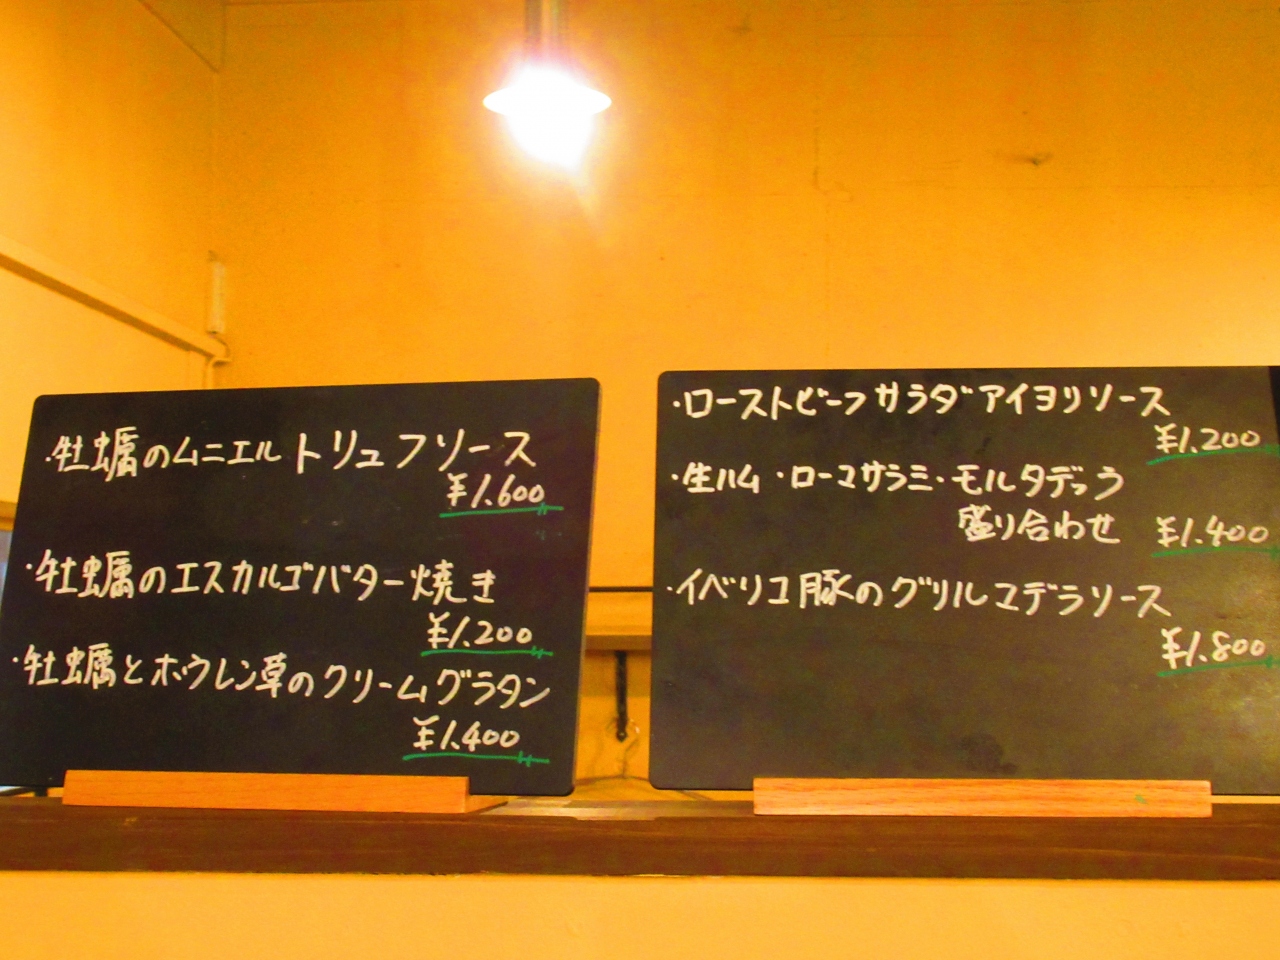 ・牡蠣のムニエル トリュフソース
¥1,600
・牡蠣のエスカルゴバター焼き
¥1,200
・牡蠣とホウレン草のクリームグラタン
¥1,400
・ローストビーフサラダアイヨリソース
¥1,200
・生ハム・ローマサラミ・モルタデッラ
盛り合わせ ¥1,400
・イベリコ豚のグリルマデラソース
¥1,800